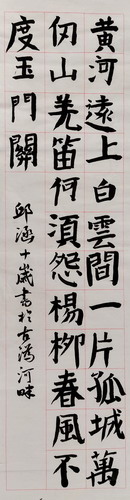 黃河遠上白雲間一片孤城萬
仞山羌笛何須怨楊柳春風不
度玉門關
邱涵十歲書於古潙河畔